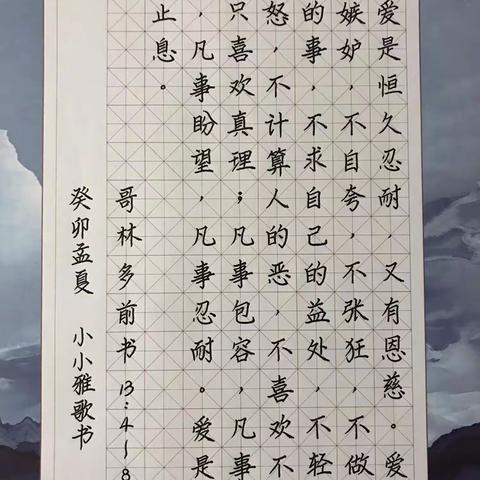 爱是恒久忍耐，又有恩慈。爱
嫉妒，不自夸，不张狂，不做
的事，不求自己的益处，不轻
怒，不计算人的恶，不喜欢不
只喜欢真理；凡事包容，凡事
，凡事盼望，凡事忍耐。爱是
止息。
哥林多前书13：4~8
癸卯孟夏 小小雅歌书